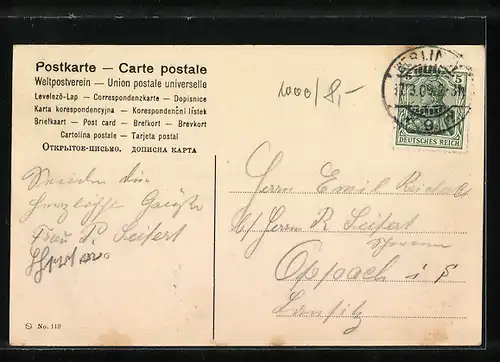 Postkarte — Carte postale
Weltpostverein – Union postale universelle
Levelező-Lap – Correspondenzkarte – Dopisnice
Karta korespondencyjna – Korespondenční lístek
Briefkaart – Post card – Brefkort – Brevkort
Cartolina postale – Tarjeta postal
Открытое-письмо. дописна карта
1000/8,-
BERLIN
5
DEUTSCHES REICH
Senden die
herzlichste Grüße
Frau P. Seifert
Herrn Emil
b/ Herrn R. Seifert
Oppach i/S
Lausitz
No. 110